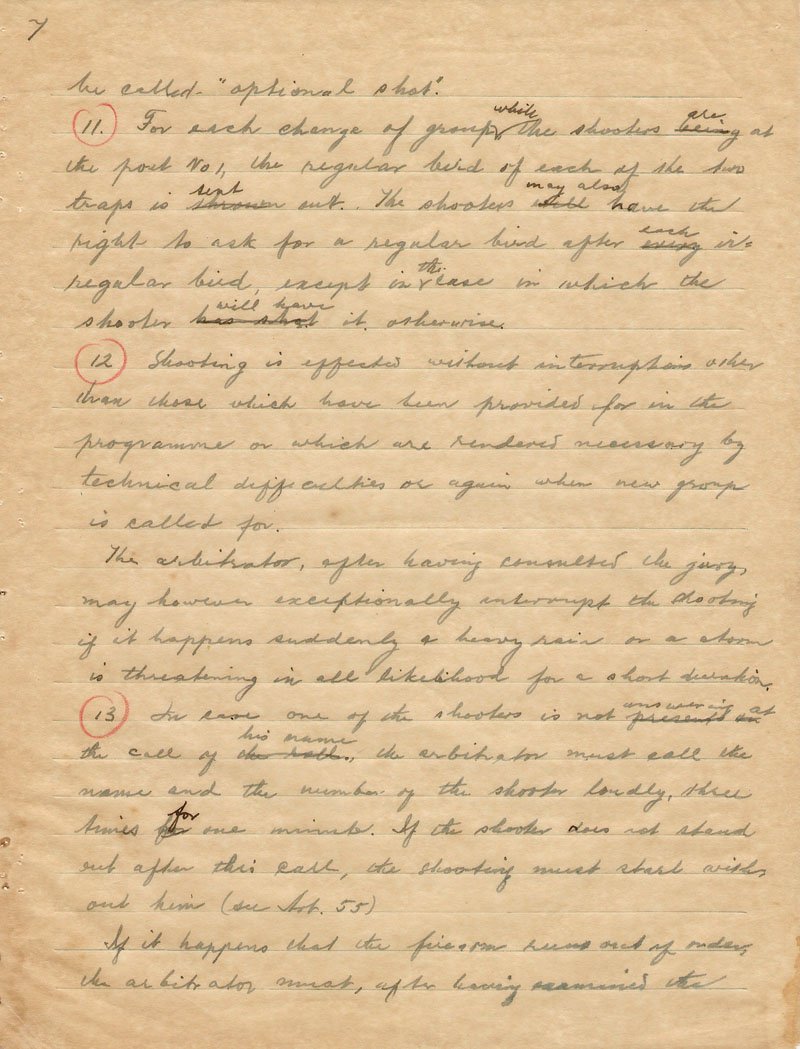 7
be called "optional shot".
11. For each change of group while the shooters being are at
the post No 1, the regular bird of each of the two
traps is thrown sent out. The shooters will may also have the
right to ask for a regular bird after every each ir=
regular bird, except in the case in which the
shooter has shot will have it otherwise.
12 Shooting is effected without interruptions other
than those which have been provided for in the
programme or which are rendered necessary by
technical difficulties or again when new group
is called for.
The arbitrator, after having consulted the jury,
may however exceptionally interrupt the shooting
if it happens suddenly a heavy rain or a storm
is threatening in all likelihood for a short duration.
13 In case one of the shooters is not answering at
the call of the roll his name, the arbitrator must call the
name and the number of the shooter loudly, three
times for one minute. If the shooter does not stand
out after this call, the shooting must start with=
out him (see Art. 55)
If it happens that the firearm runs out of order,
the arbitrator must, after having examined the